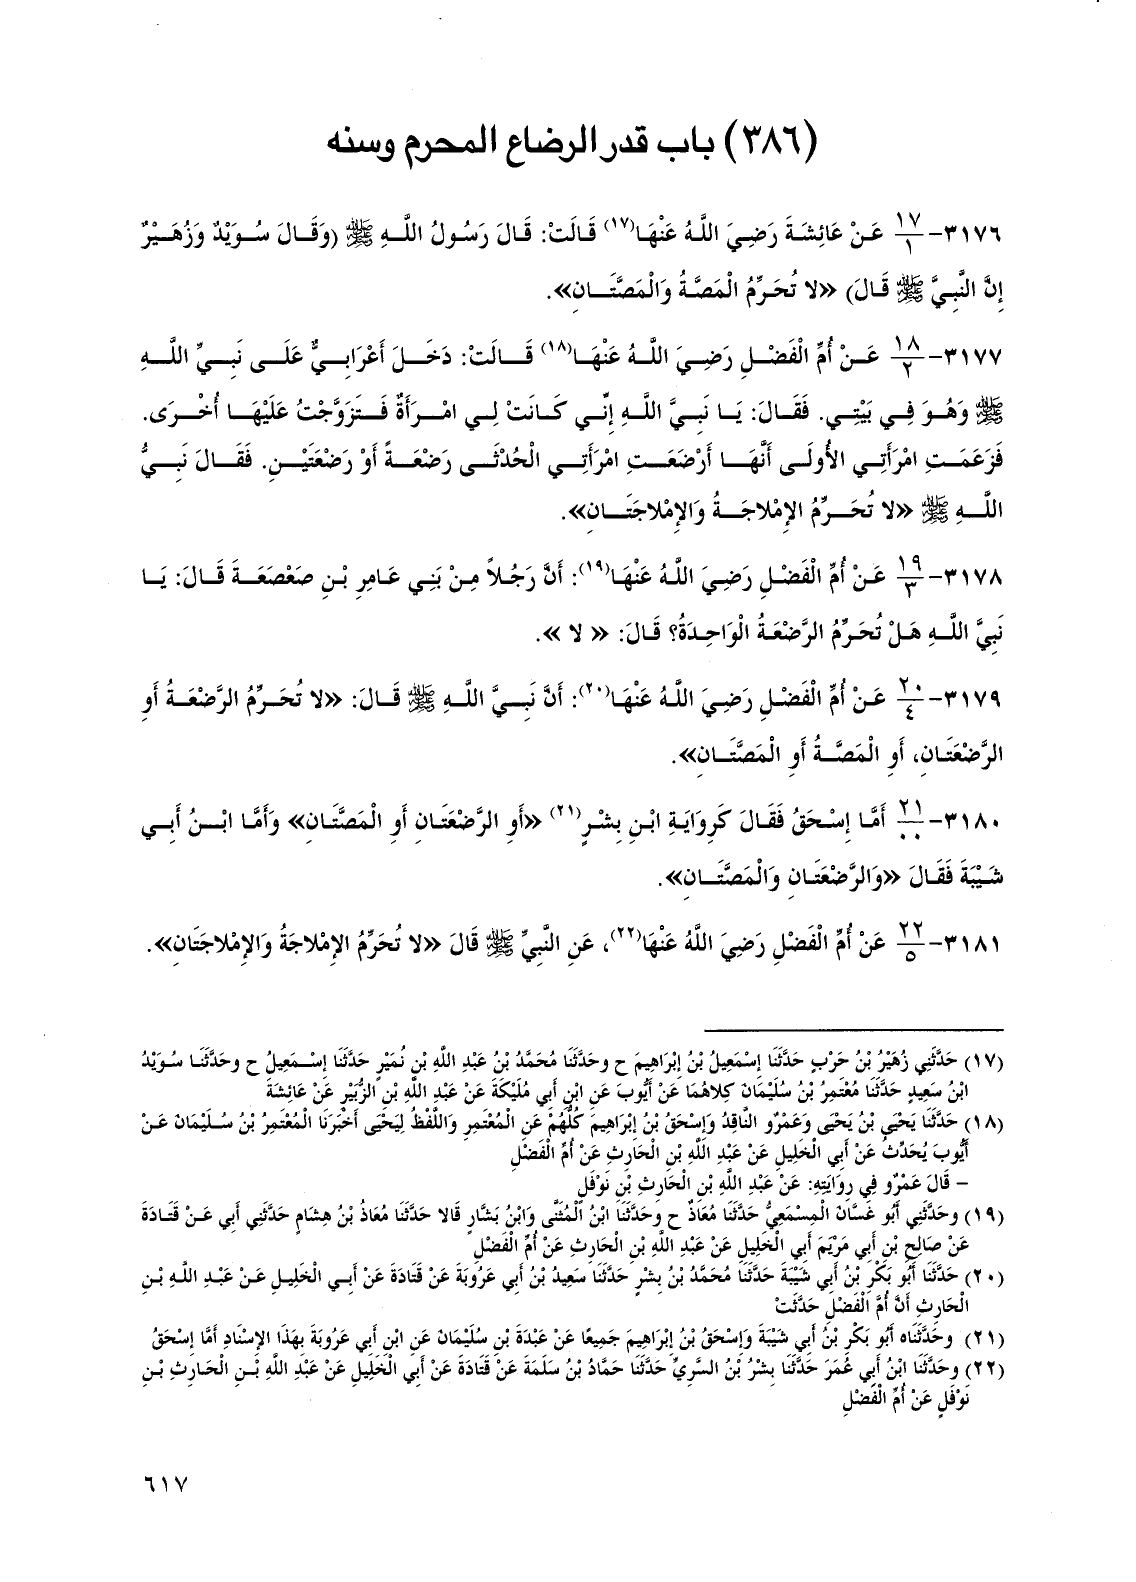 (٣٨٦) باب قدر الرضاع المحرم وسنه
٣١٧٦- ١٧/١ عَنْ عَائِشَةَ رَضِيَ اللَّهُ عَنْهَا(١٧) قَالَتْ: قَالَ رَسُولُ اللَّهِ ﷺ (وَقَالَ سُوَيْدٌ وَزُهَيْرٌ
إِنَّ النَّبِيَّ ﷺ قَالَ) «لا تُحَرِّمُ الْمَصَّةُ وَالْمَصَّتَانِ».
٣١٧٧- ١٨/٢ عَنْ أُمِّ الْفَضْلِ رَضِيَ اللَّهُ عَنْهَا(١٨) قَالَتْ: دَخَلَ أَعْرَابِيٌّ عَلَى نَبِيِّ اللَّهِ
ﷺ وَهُوَ فِي بَيْتِي. فَقَالَ: يَا نَبِيَّ اللَّهِ إِنِّي كَانَتْ لِي امْرَأَةٌ فَتَزَوَّجْتُ عَلَيْهَا أُخْرَى.
فَزَعَمَتِ امْرَأَتِي الأُولَى أَنَّهَا أَرْضَعَتِ امْرَأَتِي الْحُدْثَى رَضْعَةً أَوْ رَضْعَتَيْنِ. فَقَالَ نَبِيُّ
اللَّهِ ﷺ «لا تُحَرِّمُ الإِمْلاجَةُ وَالإِمْلاجَتَانِ».
٣١٧٨- ١٩/٣ عَنْ أُمِّ الْفَضْلِ رَضِيَ اللَّهُ عَنْهَا(١٩): أَنَّ رَجُلاً مِنْ بَنِي عَامِرِ بْنِ صَعْصَعَةَ قَالَ: يَا
نَبِيَّ اللَّهِ هَلْ تُحَرِّمُ الرَّضْعَةُ الْوَاحِدَةُ؟ قَالَ: « لا ».
٣١٧٩- ٢٠/٤ عَنْ أُمِّ الْفَضْلِ رَضِيَ اللَّهُ عَنْهَا(٢٠): أَنَّ نَبِيَّ اللَّهِ ﷺ قَالَ: «لا تُحَرِّمُ الرَّضْعَةُ أَوِ
الرَّضْعَتَانِ، أَوِ الْمَصَّةُ أَوِ الْمَصَّتَانِ».
٣١٨٠- ٢١/٠٠ أَمَّا إِسْحَقُ فَقَالَ كَرِوَايَةِ ابْنِ بِشْرٍ(٢١) «أَوِ الرَّضْعَتَانِ أَوِ الْمَصَّتَانِ» وَأَمَّا ابْنُ أَبِي
شَيْبَةَ فَقَالَ «وَالرَّضْعَتَانِ وَالْمَصَّتَانِ».
٣١٨١- ٢٢/٥ عَنْ أُمِّ الْفَضْلِ رَضِيَ اللَّهُ عَنْهَا(٢٢)، عَنِ النَّبِيِّ ﷺ قَالَ «لا تُحَرِّمُ الإِمْلاجَةُ وَالإِمْلاجَتَانِ».
(١٧) حَدَّثَنِي زُهَيْرُ بْنُ حَرْبٍ حَدَّثَنَا إِسْمَعِيلُ بْنُ إِبْرَاهِيمَ ح وحَدَّثَنَا مُحَمَّدُ بْنُ عَبْدِ اللَّهِ بْنِ نُمَيْرٍ حَدَّثَنَا إِسْمَعِيلُ ح وحَدَّثَنَا سُوَيْدُ
ابْنُ سَعِيدٍ حَدَّثَنَا مُعْتَمِرُ بْنُ سُلَيْمَانَ كِلاهُمَا عَنْ أَيُّوبَ عَنِ ابْنِ أَبِي مُلَيْكَةَ عَنْ عَبْدِ اللَّهِ بْنِ الزُّبَيْرِ عَنْ عَائِشَةَ
(١٨) حَدَّثَنَا يَحْيَى بْنُ يَحْيَى وَعَمْرٌو النَّاقِدُ وَإِسْحَقُ بْنُ إِبْرَاهِيمَ كُلُّهُمْ عَنِ الْمُعْتَمِرِ وَاللَّفْظُ لِيَحْيَى أَخْبَرَنَا الْمُعْتَمِرُ بْنُ سُلَيْمَانَ عَنْ
أَيُّوبَ يُحَدِّثُ عَنْ أَبِي الْخَلِيلِ عَنْ عَبْدِ اللَّهِ بْنِ الْحَارِثِ عَنْ أُمِّ الْفَضْلِ
– قَالَ عَمْرٌو فِي رِوَايَتِهِ: عَنْ عَبْدِ اللَّهِ بْنِ الْحَارِثِ بْنِ نَوْفَلٍ
(١٩) وحَدَّثَنِي أَبُو غَسَّانَ الْمِسْمَعِيُّ حَدَّثَنَا مُعَاذٌ ح وحَدَّثَنَا ابْنُ الْمُثَنَّى وَابْنُ بَشَّارٍ قَالا حَدَّثَنَا مُعَاذُ بْنُ هِشَامٍ حَدَّثَنِي أَبِي عَنْ قَتَادَةَ
عَنْ صَالِحِ بْنِ أَبِي مَرْيَمَ أَبِي الْخَلِيلِ عَنْ عَبْدِ اللَّهِ بْنِ الْحَارِثِ عَنْ أُمِّ الْفَضْلِ
(٢٠) حَدَّثَنَا أَبُو بَكْرِ بْنُ أَبِي شَيْبَةَ حَدَّثَنَا مُحَمَّدُ بْنُ بِشْرٍ حَدَّثَنَا سَعِيدُ بْنُ أَبِي عَرُوبَةَ عَنْ قَتَادَةَ عَنْ أَبِي الْخَلِيلِ عَنْ عَبْدِ اللَّهِ بْنِ
الْحَارِثِ أَنَّ أُمَّ الْفَضْلِ حَدَّثَتْ
(٢١) وحَدَّثَنَاه أَبُو بَكْرِ بْنُ أَبِي شَيْبَةَ وَإِسْحَقُ بْنُ إِبْرَاهِيمَ جَمِيعًا عَنْ عَبْدَةَ بْنِ سُلَيْمَانَ عَنِ ابْنِ أَبِي عَرُوبَةَ بِهَذَا الإِسْنَادِ أَمَّا إِسْحَقُ
(٢٢) وحَدَّثَنَا ابْنُ أَبِي عُمَرَ حَدَّثَنَا بِشْرُ بْنُ السَّرِيِّ حَدَّثَنَا حَمَّادُ بْنُ سَلَمَةَ عَنْ قَتَادَةَ عَنْ أَبِي الْخَلِيلِ عَنْ عَبْدِ اللَّهِ بْنِ الْحَارِثِ بْنِ
نَوْفَلٍ عَنْ أُمِّ الْفَضْلِ
٦١٧